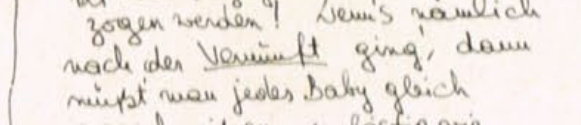 zogen werden? Wenn's nämlich
nach der Vernunft ging, dann
müßt man jedes Baby gleich